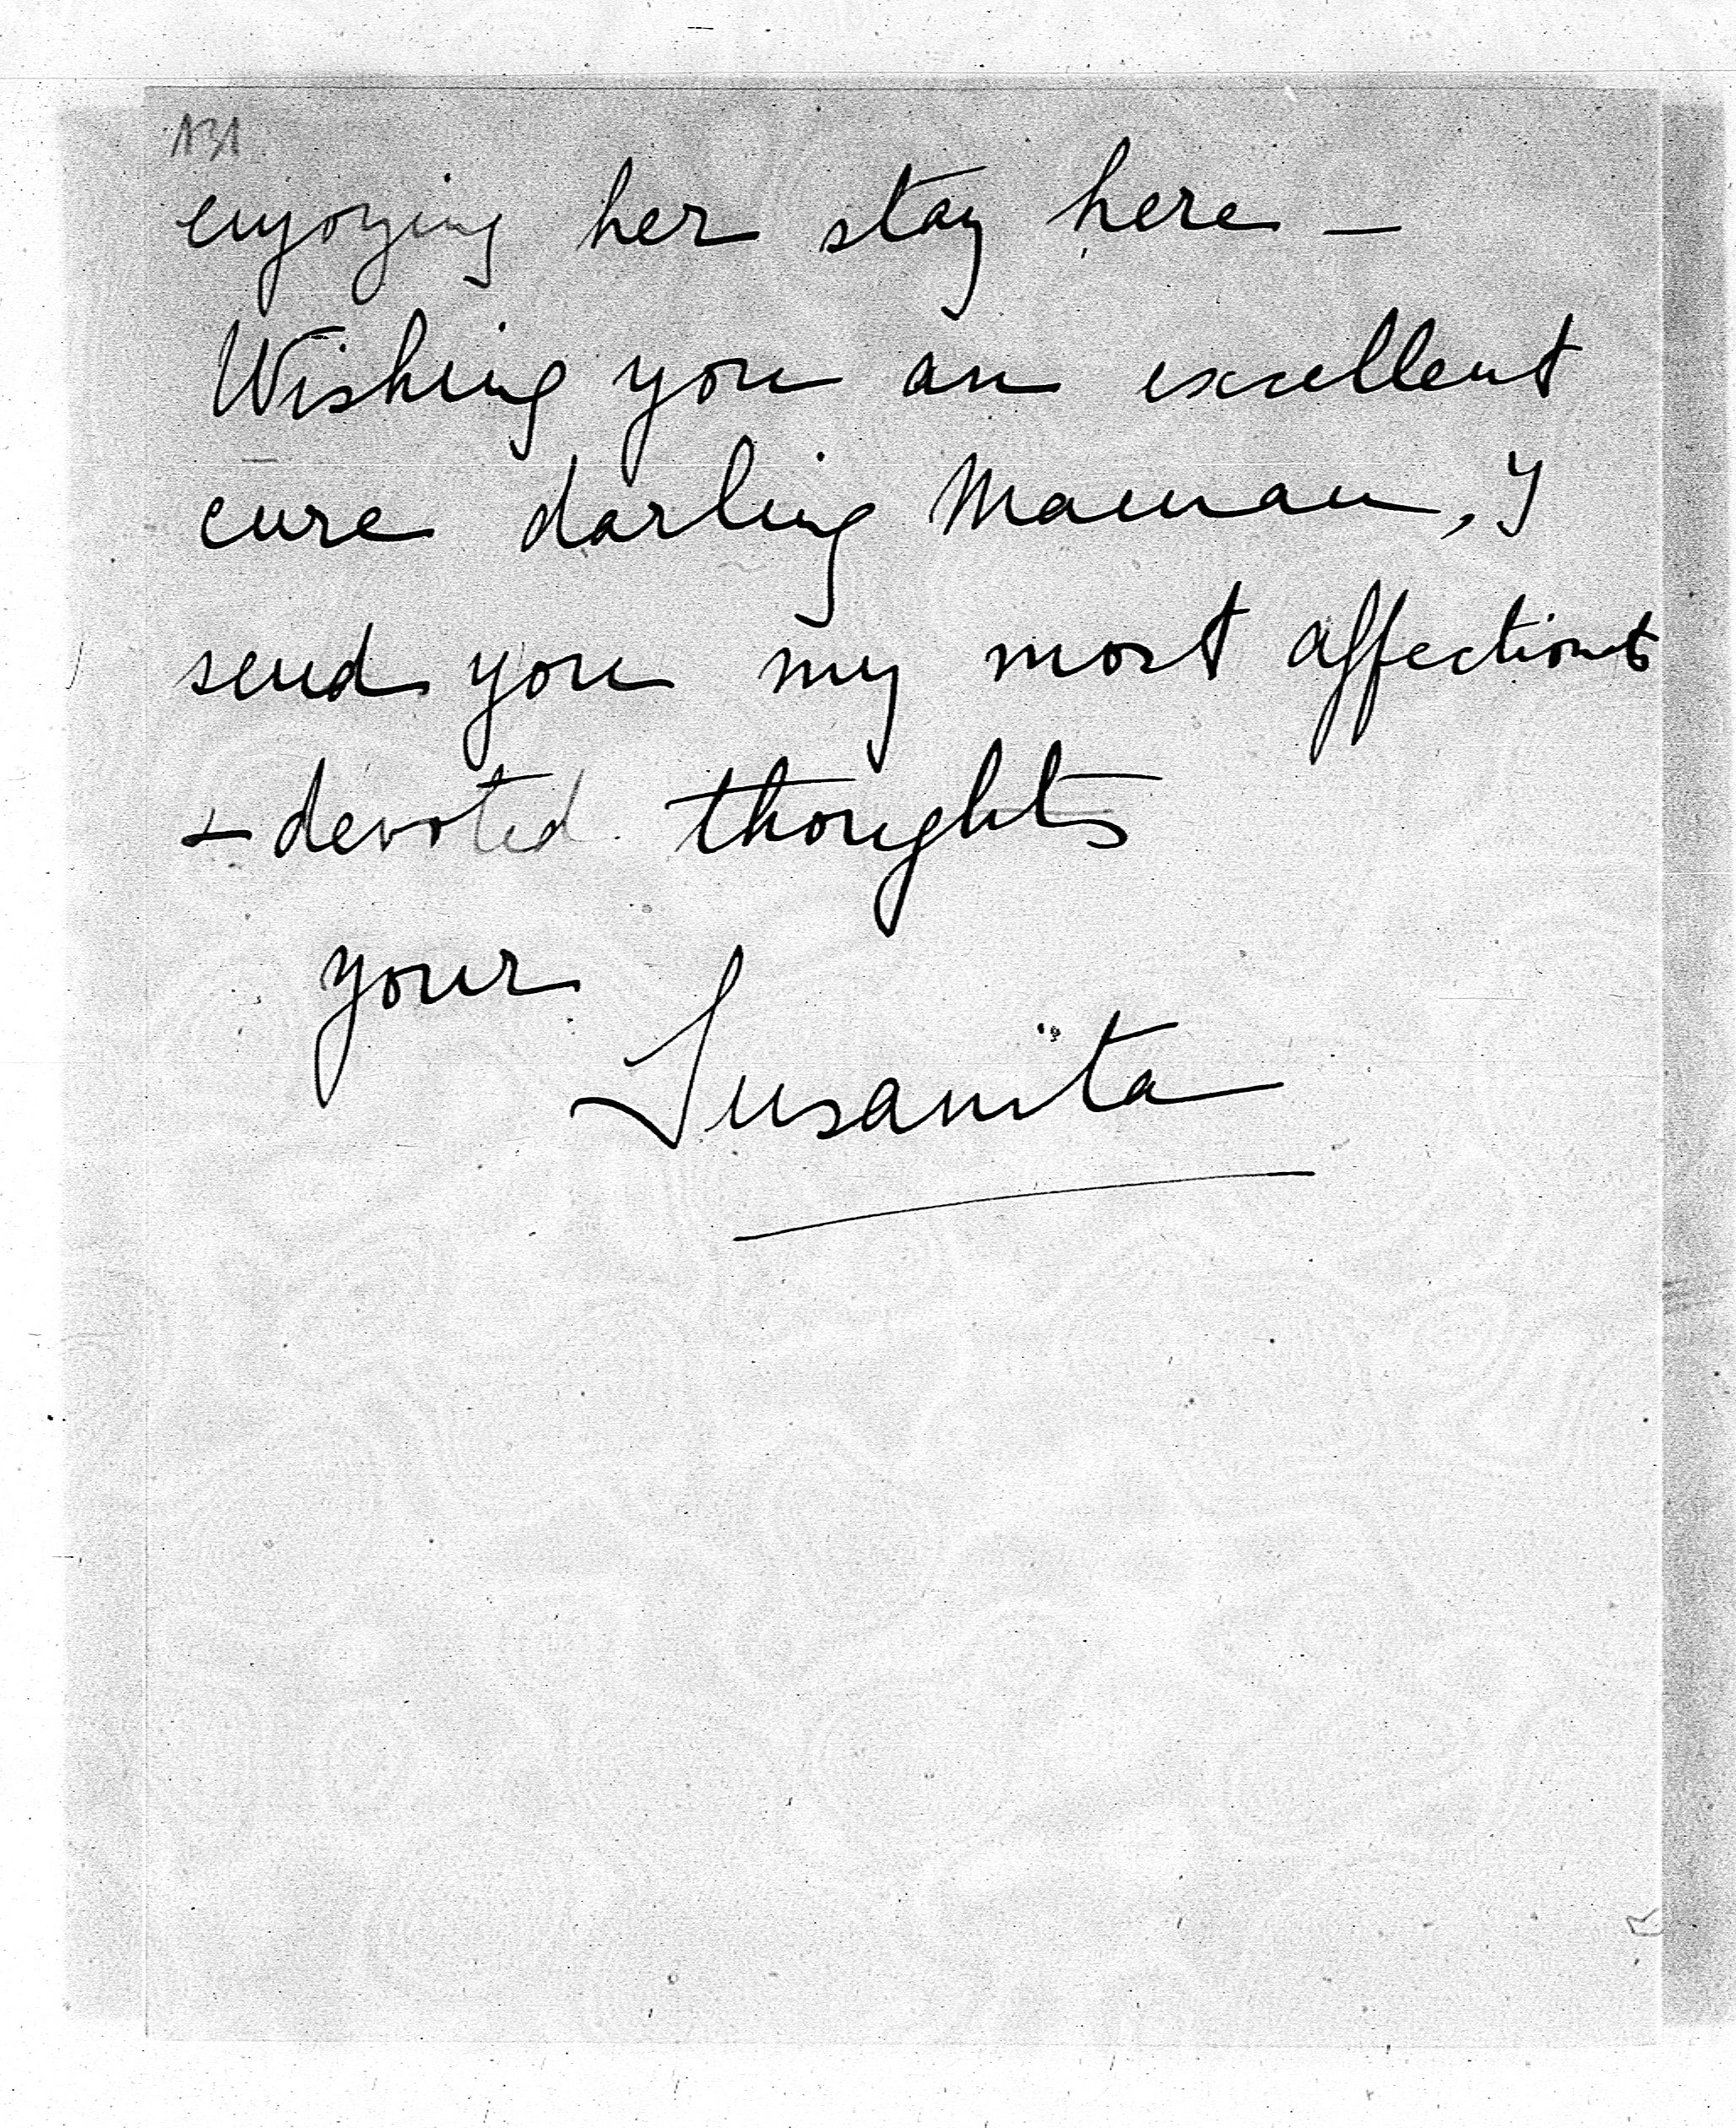 131
enjoying her stay here —
Wishing you an excellent
cure darling Maman, I
send you my most affectionate
+ devoted thoughts
your
Susanita